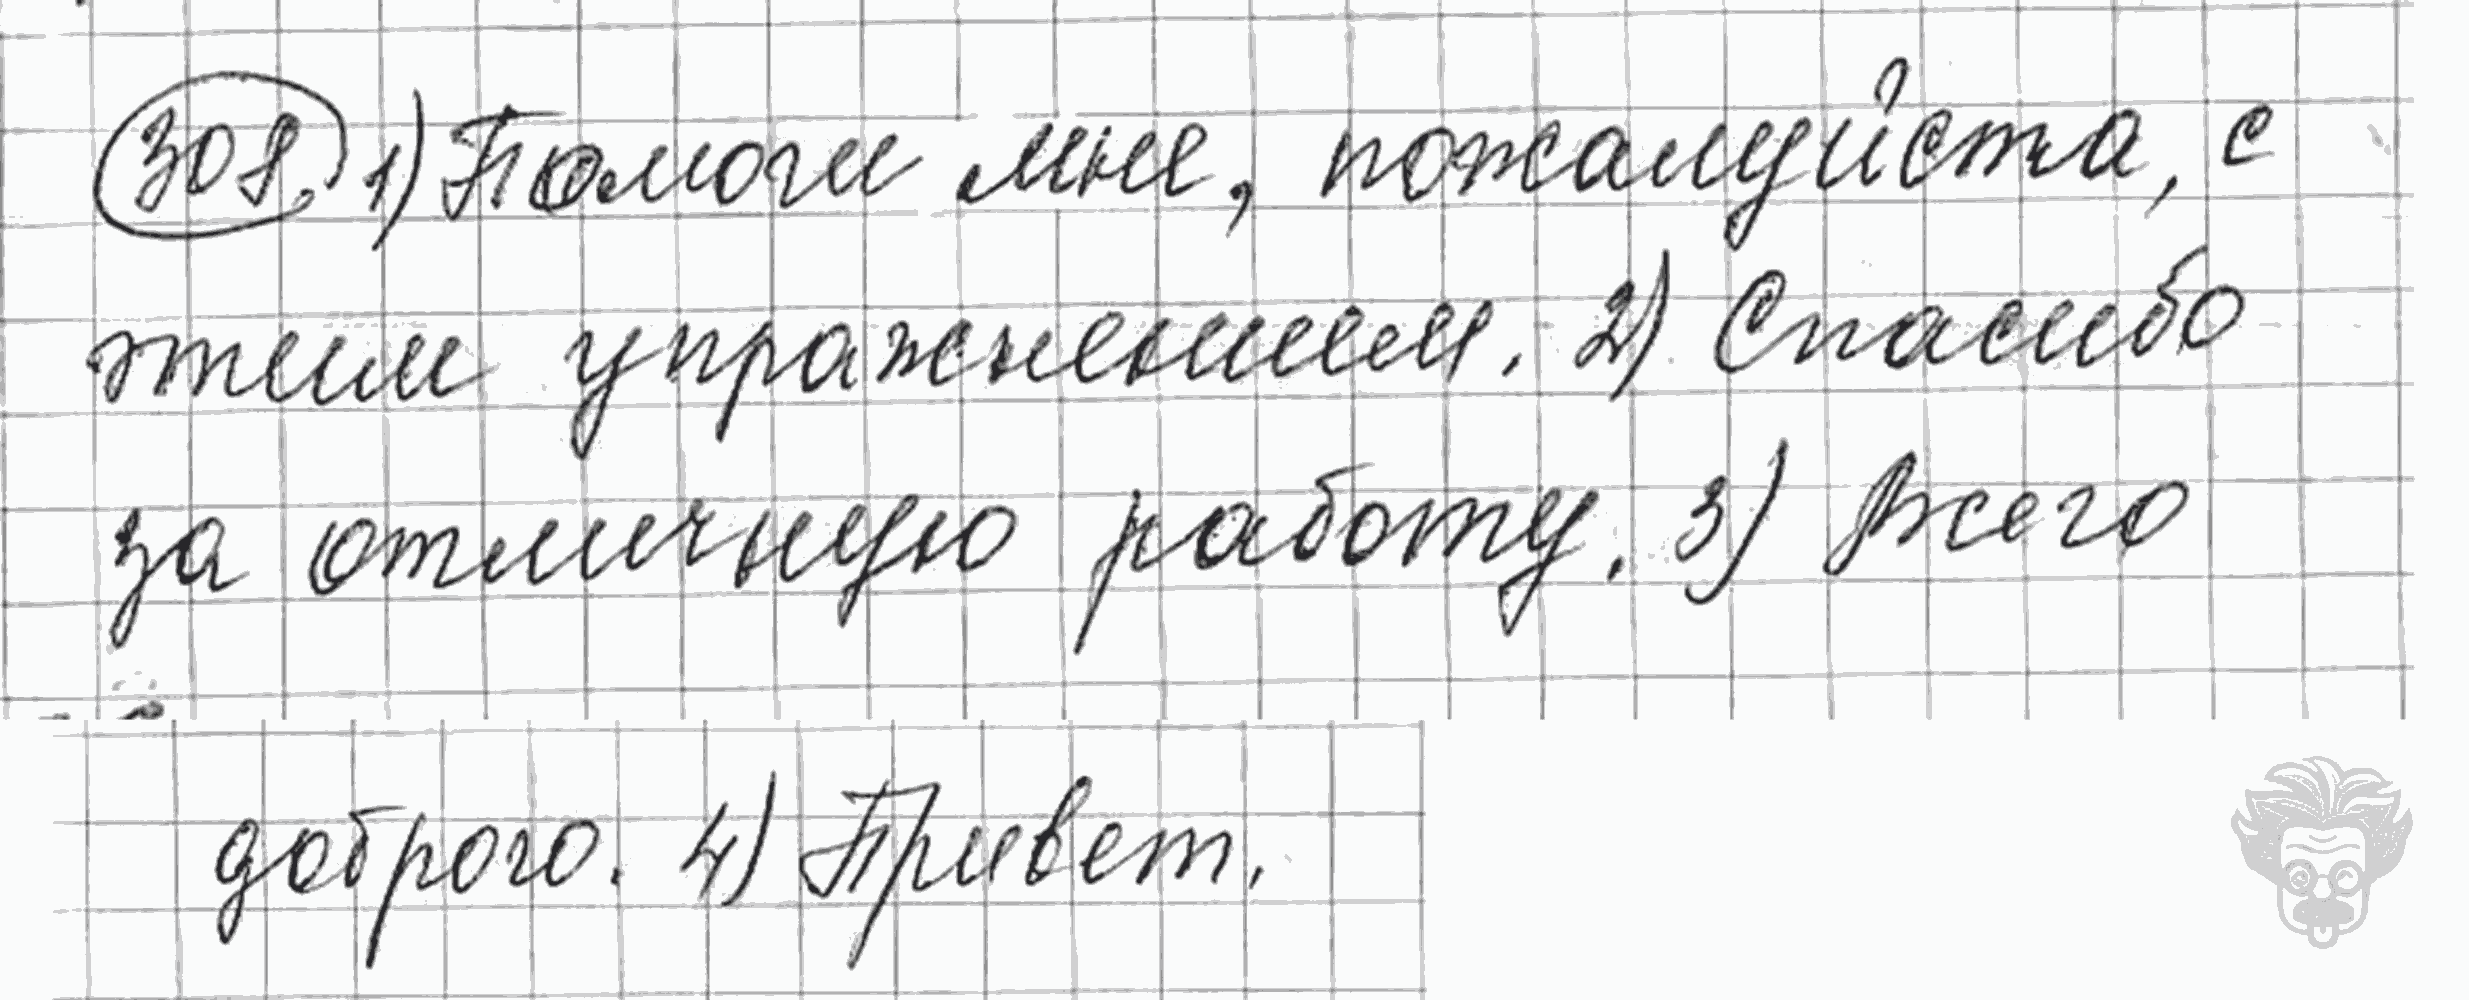 308. 1) Помоги мне, пожалуйста, с
этим упражнением. 2) Спасибо
за отличную работу. 3) Всего
доброго. 4) Привет.